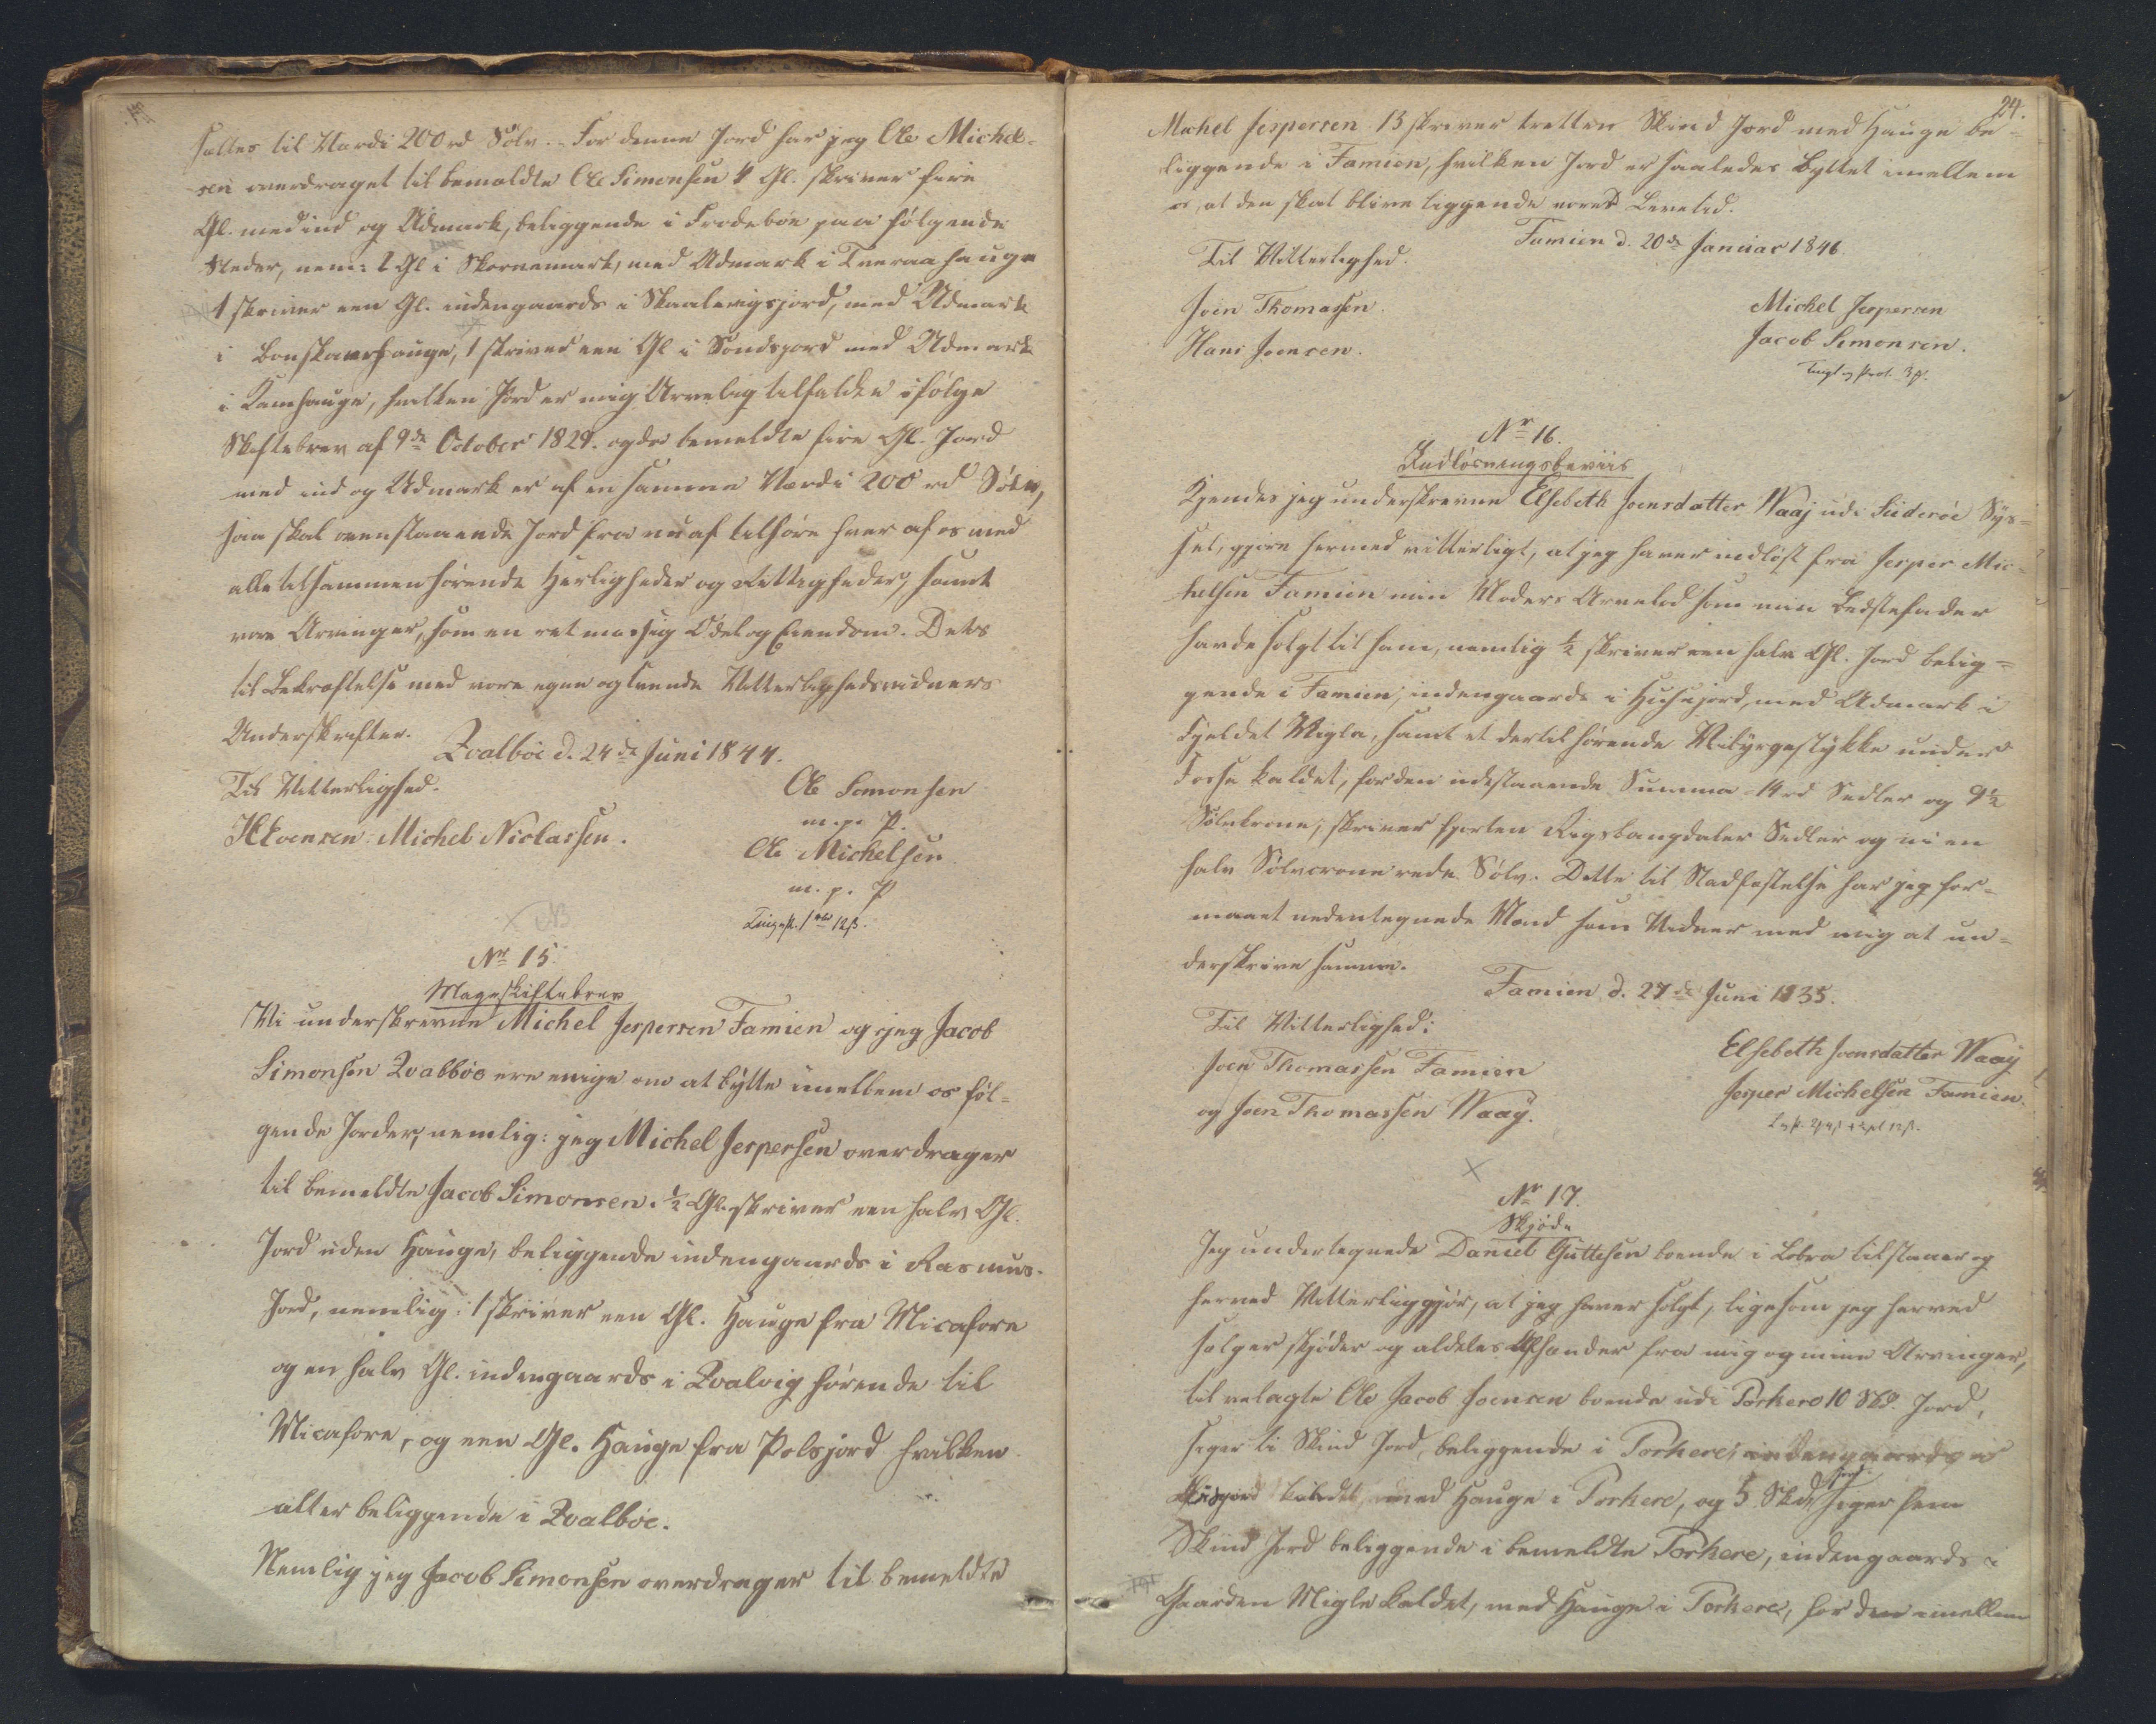 sættes til Værdi 200 rd Sølv. For denne Jord har jeg Ole Michel-
sen overdraget til bemældte Ole Simonsen 4 Gl. skriver fire
Gl. med ind og Udmark, beliggende i Frodebøe paa følgende
Steder, nem: 2 Gl i med Udmark i Tveraa hauge
1 skriver een Gl. indengaards i Skaalevigsjord, med Udmark
i hauge, 1 skriver een Gl i Sondsgord med Udmark
i Kamhauge, hvilken Jord er mig Arvelig tilfalden ifølge
Skiftebrev af 9de October 1829. og da bemeldte fire Gl. Jord
med ind og Udmark er af en samme Værdi 200 rd Sølv,
saa skal ovenstaaende Jord fra nu af tilhøre hver af os med
alle tilsammen hørende Herligheder og Rettigheder, samt
vore Arvinger, som en retmæssig Odel og Eiendom. Dets
til Bekræftelse med vore egne og tvende Vitterlighedsvidners
Underskrifter.
Qvalbøe d. 24de Juni 1844.
Til Vitterlighed.
Ole Simonsen
m. p. P.
Michel Niclassen.
Ole Michelsen
m. p. P
12ß.
NB
No 15.
Mageskiftebrev
Vi underskrevne Michel Jespersen Famien og jeg Jacob
Simonsen Qvalbøe ere enige om at bytte imellem os føl-
gende Jorder, nemlig: jeg Michel Jespersen overdrager
til bemeldte Jacob Simonsen. ½ Gl. skriver een halv Gl.
Jord uden Hauge, beliggende indengaards i Rasmus-
Jord, nemlig: 1 skriver een Gl. Hauge fra Micafore
og en halv Gl. indengaards i Qvalvig hørende til
Micafore, og een Gl. Hauge fra Polsjord hvilken
alt er beliggende i Qvalbøe.
Nemlig jeg Jacob Simonsen overdrager til bemeldte
24.
Michel Jespersen 13 skriver tretten Skind Jord med Hauge be-
liggende i Famien, hvilken Jord er saaledes byttet imellem
os, at den skal blive liggende vores Levetid.
Famien d. 20de Januar 1846
Til Vitterlighed.
Joen Thomassen.
Michel Jespersen
Hans Joensen.
Jacob Simonsen.
No 16.
Indløsningsbeviis
Kjendes jeg underskrevne Elsebeth Joensdatter Waaj udi Süderøe Sys-
sel, gjøre hermed vitterligt, at jeg haver indløst fra Jesper Mic-
helsen Famien min Moders Arvelod som min Bedstefader
havde solgt til ham, nemlig ½ skriver een halv Gl. Jord belig-
gende i Famien, indengaards i Husejord, med Udmark i
Fjeldet Migla, samt et dertil hørende stykke under
Fosse kaldet, for den indestaaende Summa 14 rd Sedler og 9½
Sølvkrone, skriver fjorten Rigsbankdaler Sedler og ni en
halv Sølvcrone rede Sølv. Dette til Stadfæstelse har jeg for-
maaet nedentegnede Mænd som Vidner med mig at un-
derskrive samme.
Famien d. 27de Juni 1835.
Til Vitterlighed:
Elsebeth Joensdatter Waaÿ
Joen Thomassen Famien
Jesper Michelsen Famien.
og Joen Thomassen Waaÿ.
No 17.
Skjøde
Jeg undertegnede Daniel Guttesen boende i Lobra tilstaaer og
herved Vitterliggjør, at jeg haver solgt, ligesom jeg herved
sælger skjøder og aldeles Afhænder fra mig og mine Arvinger,
til velagte Ole Jacob Joensen boende udi Porkere 10 Skd. Jord,
siger ti Skind Jord, beliggende i Porkere, indengaards i
kaldet, med Hauge i Porkere, og 5 Skd. Jord siger fem
Skind Jord beliggende i bemeldte Porkere, indengaards i
Gaarden Migle kaldet, med Hauge i Porkere, for den imellem